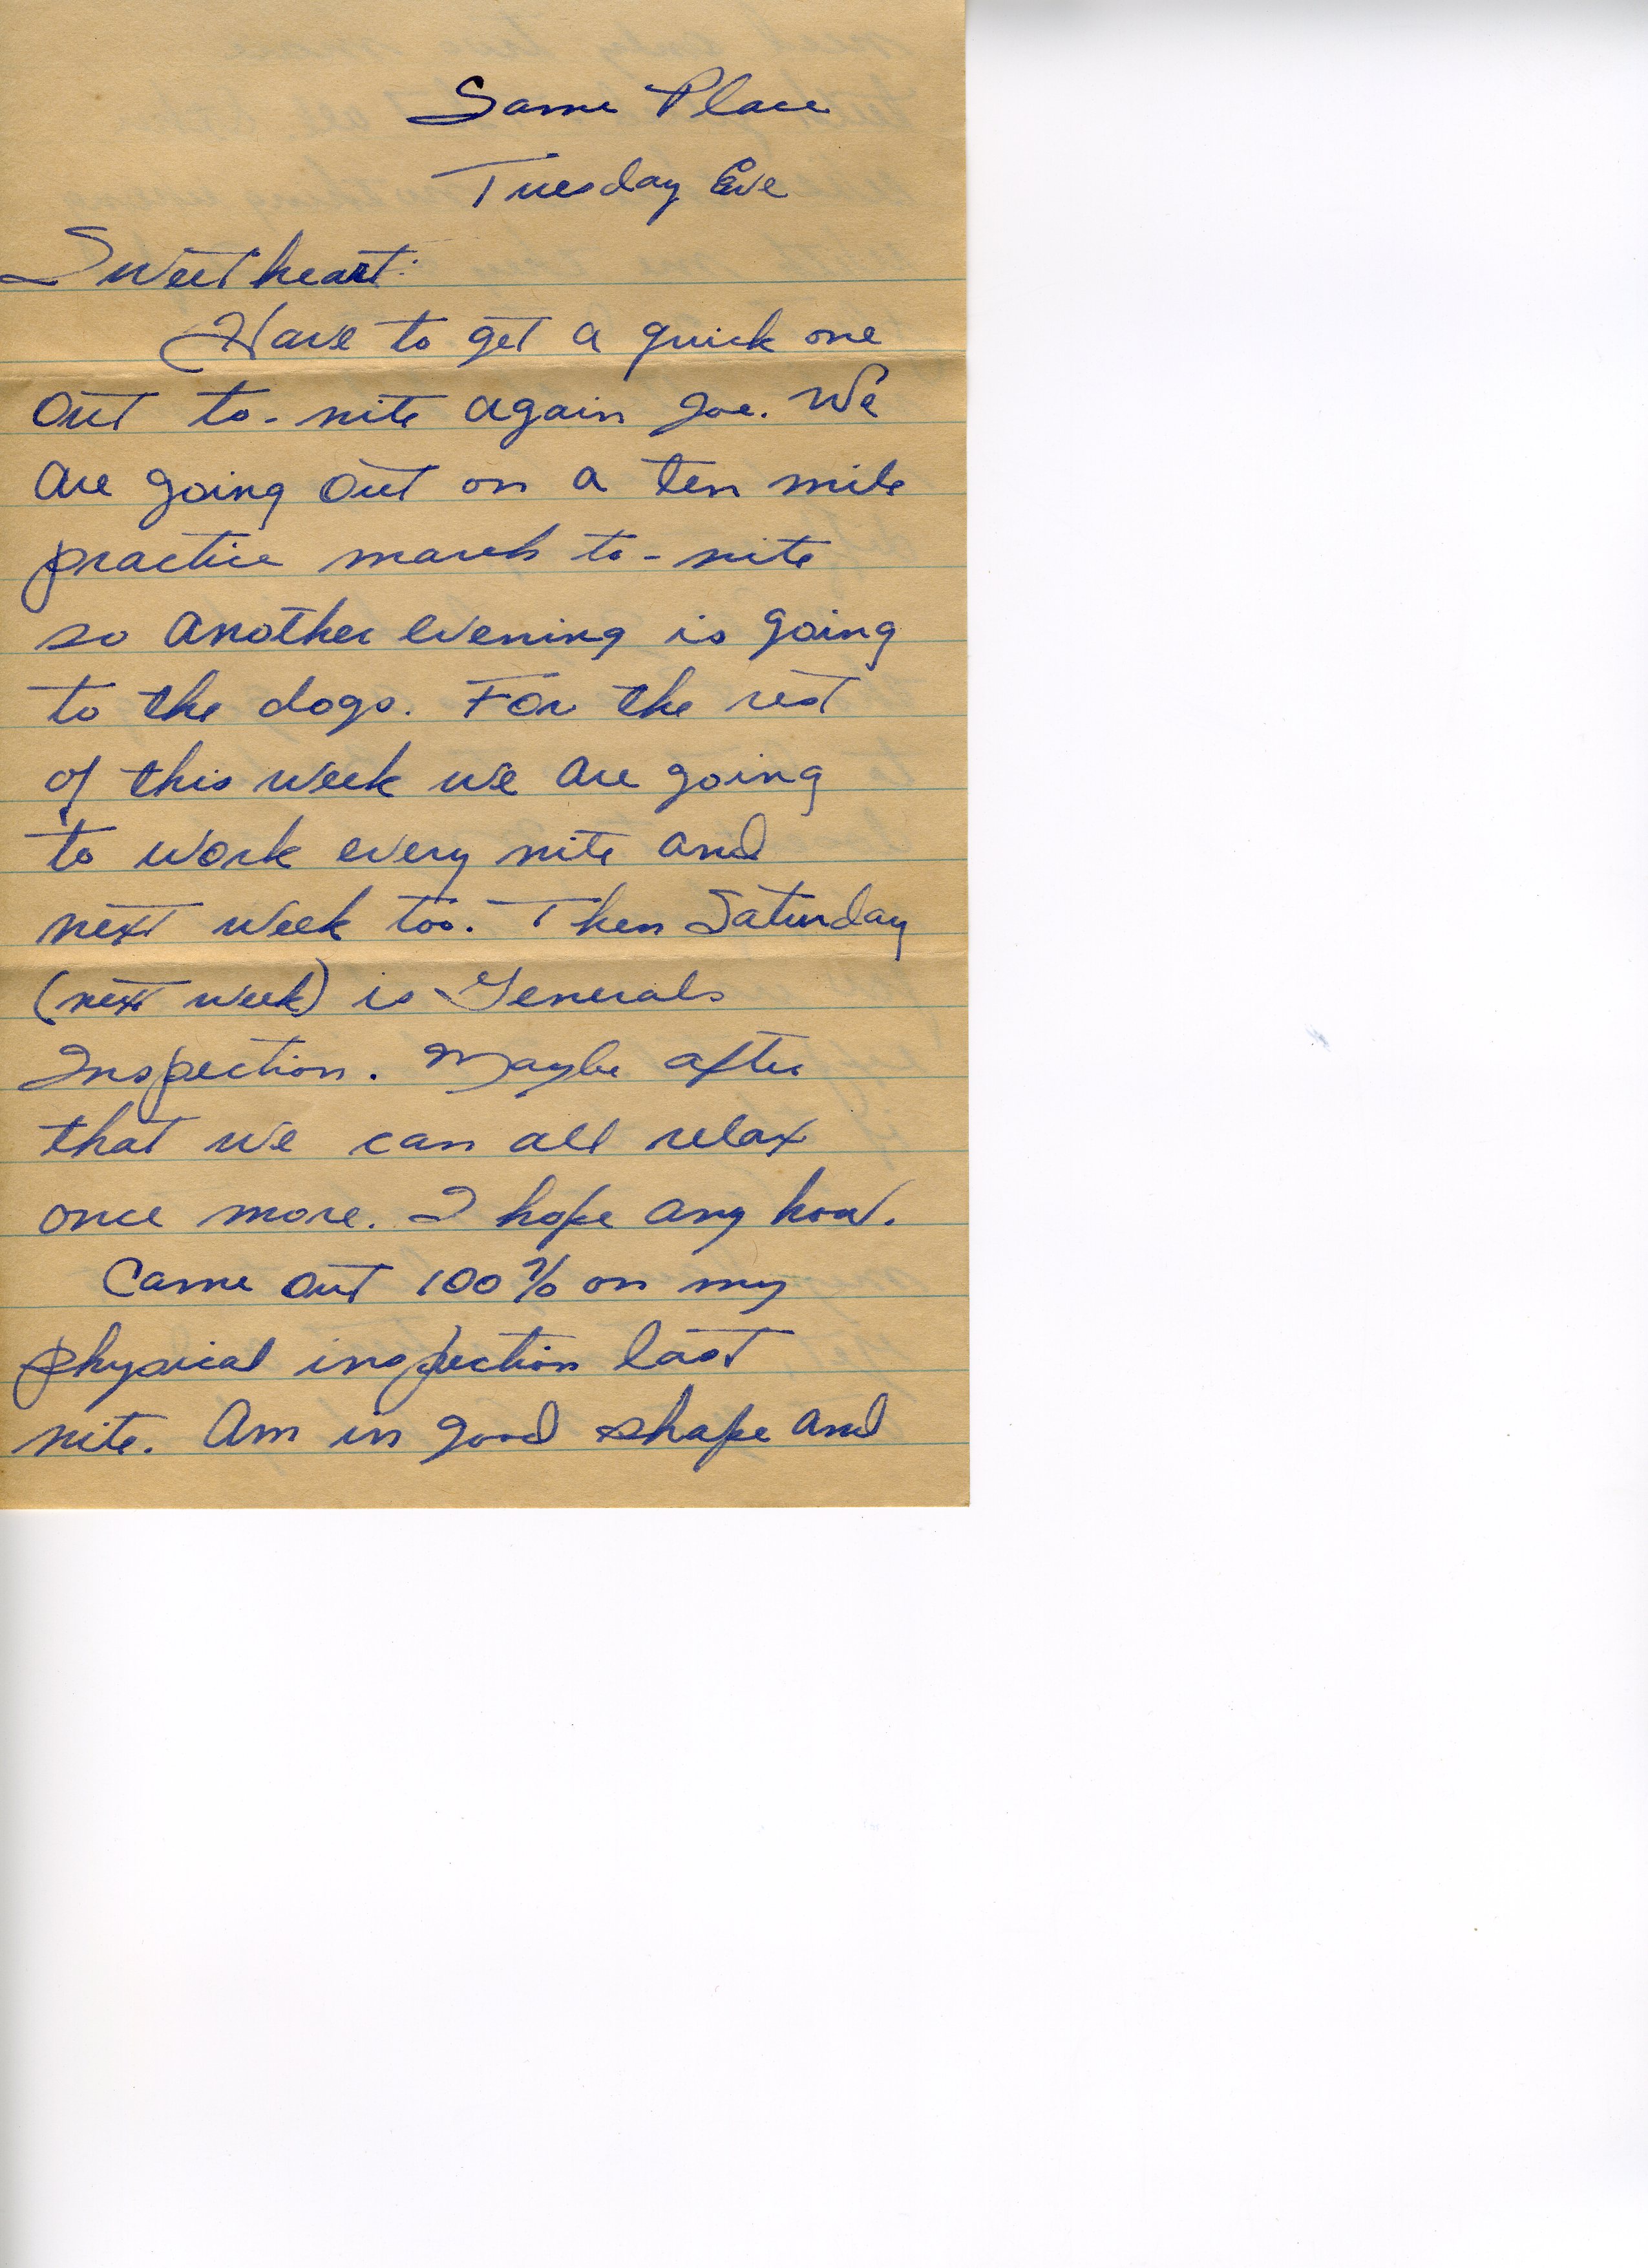 Same Place
Tuesday Eve
Sweetheart:
Have to get a quick one
out to-nite again Joe. We
are going out on a ten mile
practice march to-nite
so another evening is going
to the dogs. For the rest
of this week we are going
to work every nite and
next week too. Then Saturday
(next week) is Generals
Inspection. Maybe after
that we can all relax
once more. I hope any how.
Came out 100% on my
physical inspection last
nite. Am in good shape and